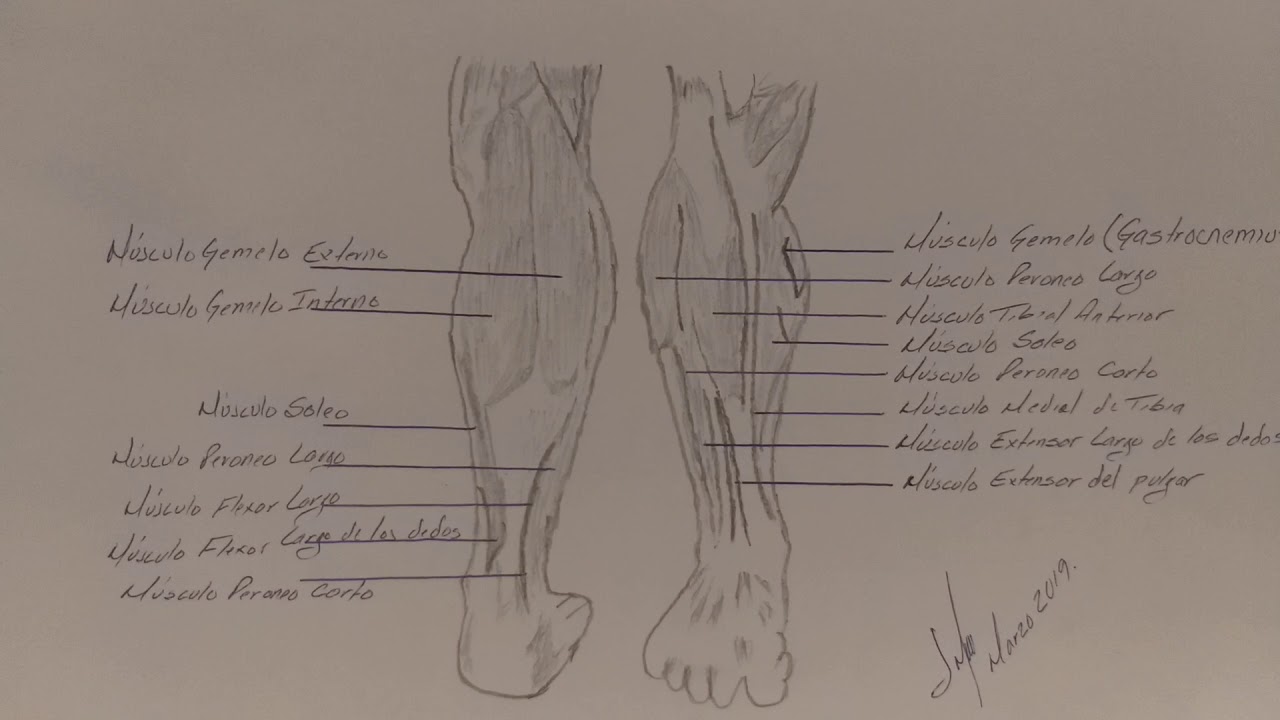 Músculo Gemelo Externo
Músculo Gemelo Interno
Músculo Soleo
Músculo Peroneo Largo
Músculo Flexor Largo
Músculo Flexor Largo de los dedos
Músculo Peroneo Corto
Músculo Gemelo (Gastrocnemius
Músculo Peroneo Largo
Músculo Tibial Anterior
Músculo Soleo
Músculo Peroneo Corto
Músculo Medial de Tibia
Músculo Extensor Largo de los dedos
Músculo Extensor del pulgar
Marzo 2019.